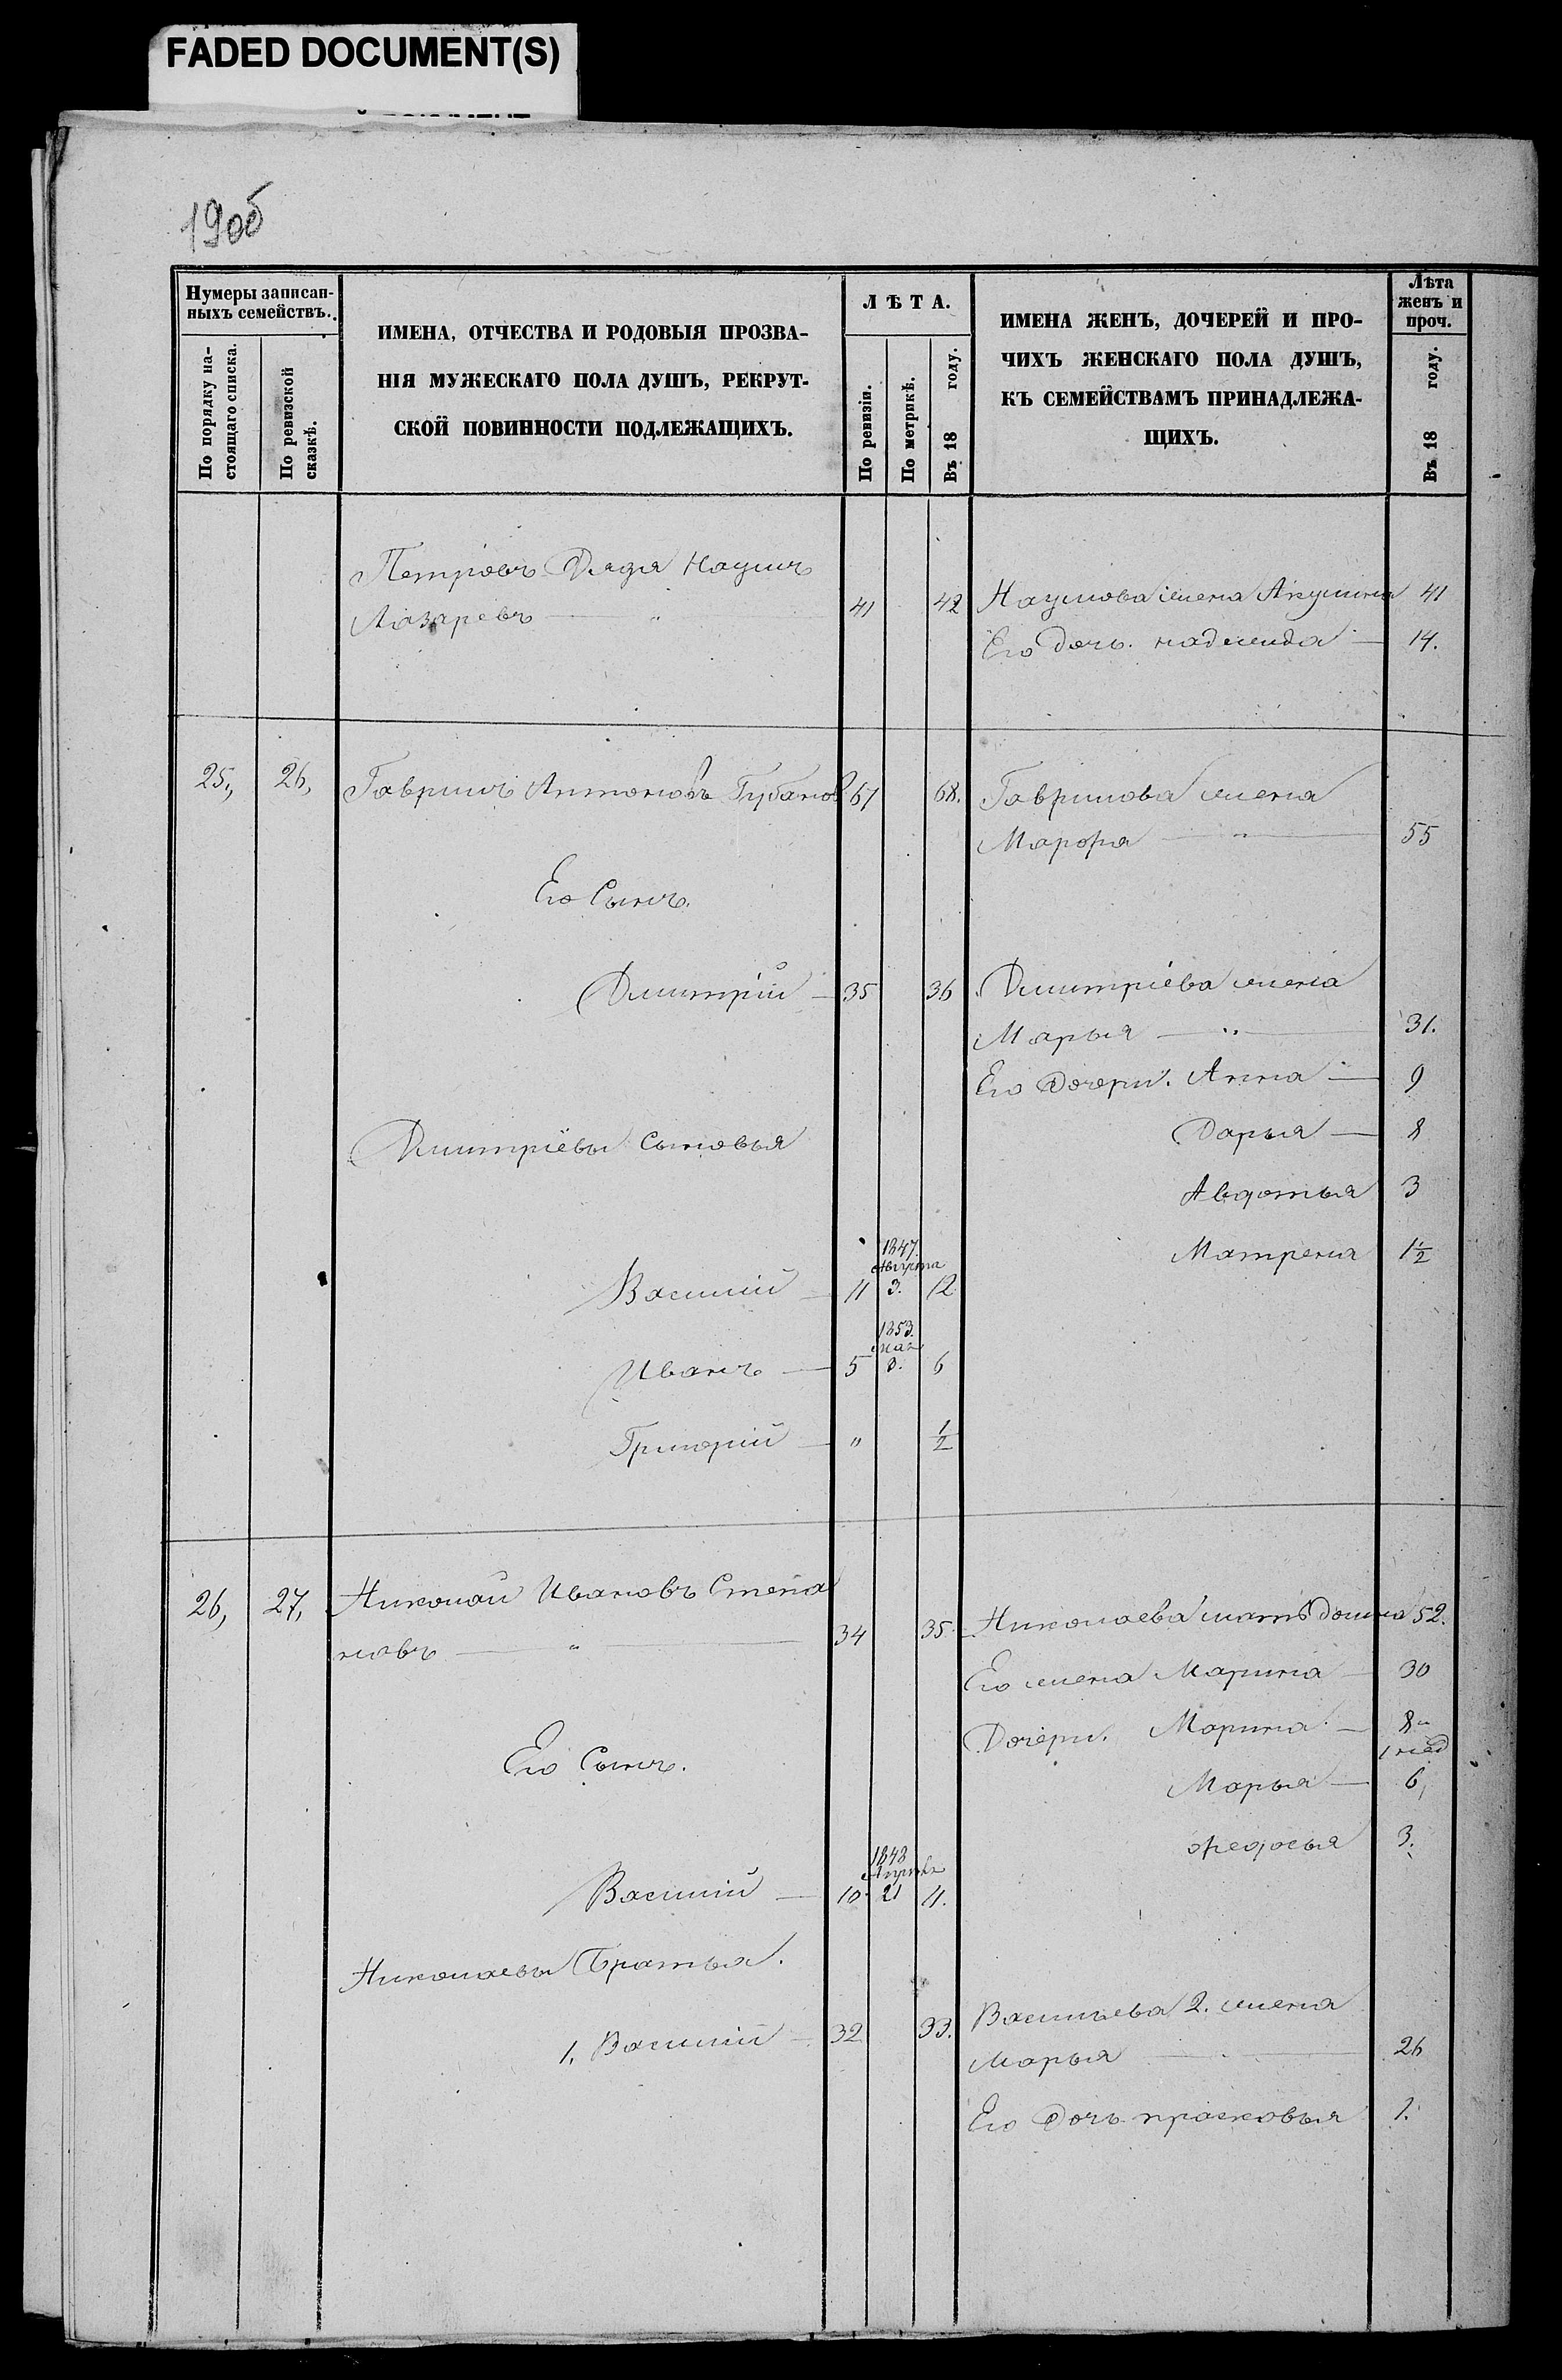 FADED DOCUMENT(S)
190об
Нумеры записан-
ныхъ семействъ.
По порядку на-
стоящаго списка.
По ревизской
сказкѣ.
ИМЕНА, ОТЧЕСТВА И РОДОВЫЯ ПРОЗВА-
НІЯ МУЖЕСКАГО ПОЛА ДУШЪ, РЕКРУТ-
СКОЙ ПОВИННОСТИ ПОДЛЕЖАЩИХЪ.
ЛѢТА.
По ревизіи.
По метрикѣ.
Въ 18 году.
ИМЕНА ЖЕНЪ, ДОЧЕРЕЙ И ПРО-
ЧИХЪ ЖЕНСКАГО ПОЛА ДУШЪ,
КЪ СЕМЕЙСТВАМЪ ПРИНАДЛЕЖА-
ЩИХЪ.
Лѣта
женъ и
проч.
Въ 18 году.
Петровъ Дядя Наумъ
Лазаревъ — " — 41 42
Наумова жена Акулина 41
Его дочь. надежда — 14.
25, 26, Гаврилъ Антоновъ Губановъ 67 68.
Гаврилова жена
Марфа — " — 55
Его Сынъ.
Дмитрій — 35 36
Дмитріева жена
Марья — " — 31.
Его Дочери. Анна — 9
Дарья — 8
Авдотья 3
Матрена 1½
Дмитріевы сыновья
1847.
Августа
Василій — 11 3. 12
1853.
мая
Иванъ — 5 8. 6
Григорій — " ½
26, 27, Николай Ивановъ Степа
новъ — " — 34 35.
Николаева мать домна 52.
Его жена Марина — 30
Дочери. Марина — 8 "
1 нед
Марья — 6,
Федосья 3.
Его Сынъ.
1848
Василій — 10 21 11.
Николаевы Братья.
1. Василій — 32 33.
Васильева 2. жена
Марья — 26
Его Дочь прасковья 1.